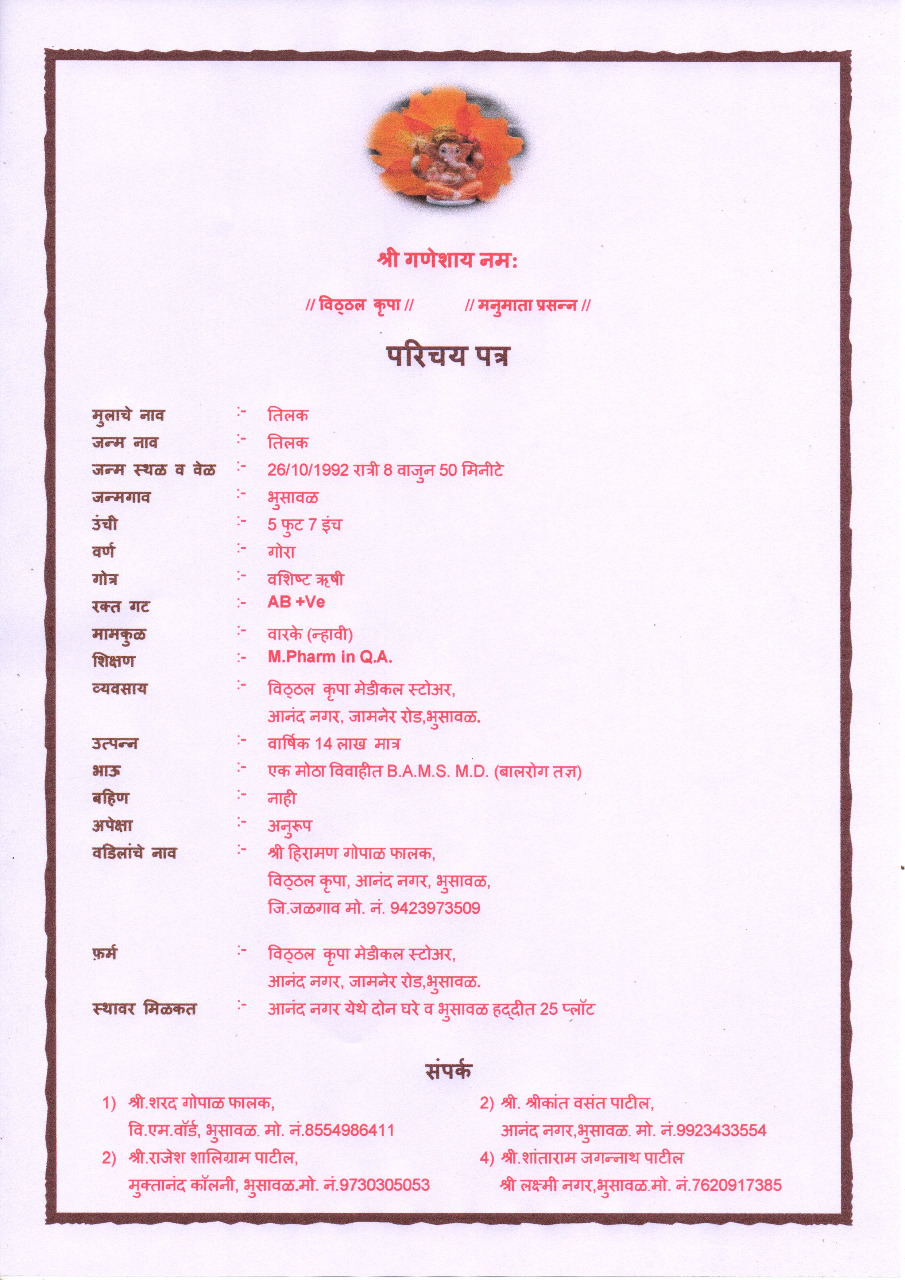 श्री गणेशाय नम:
// विठ्ठल कृपा // // मनुमाता प्रसन्न //
परिचय पत्र
मुलाचे नाव :- तिलक
जन्म नाव :- तिलक
जन्म स्थळ व वेळ :- 26/10/1992 रात्री 8 वाजुन 50 मिनीटे
जन्मगाव :- भुसावळ
उंची :- 5 फुट 7 इंच
वर्ण :- गोरा
गोत्र :- वशिष्ट ऋषी
रक्त गट :- AB +Ve
मामकुळ :- वारके (न्हावी)
शिक्षण :- M.Pharm in Q.A.
व्यवसाय :- विठ्ठल कृपा मेडीकल स्टोअर,
आनंद नगर, जामनेर रोड,भुसावळ.
उत्पन्न :- वार्षिक 14 लाख मात्र
भाऊ :- एक मोठा विवाहीत B.A.M.S. M.D. (बालरोग तज्ञ)
बहिण :- नाही
अपेक्षा :- अनुरूप
वडिलांचे नाव :- श्री हिरामण गोपाळ फालक,
विठ्ठल कृपा, आनंद नगर, भुसावळ,
जि.जळगाव मो. नं. 9423973509
फ़र्म :- विठ्ठल कृपा मेडीकल स्टोअर,
आनंद नगर, जामनेर रोड,भुसावळ.
स्थावर मिळकत :- आनंद नगर येथे दोन घरे व भुसावळ हद्दीत 25 प्लॉट
संपर्क
1) श्री.शरद गोपाळ फालक, 2) श्री. श्रीकांत वसंत पाटील,
वि.एम.वॉर्ड, भुसावळ. मो. नं.8554986411 आनंद नगर,भुसावळ. मो. नं.9923433554
2) श्री.राजेश शालिग्राम पाटील, 4) श्री.शांताराम जगन्नाथ पाटील
मुक्तानंद कॉलनी, भुसावळ.मो. नं.9730305053 श्री लक्ष्मी नगर,भुसावळ.मो. नं.7620917385